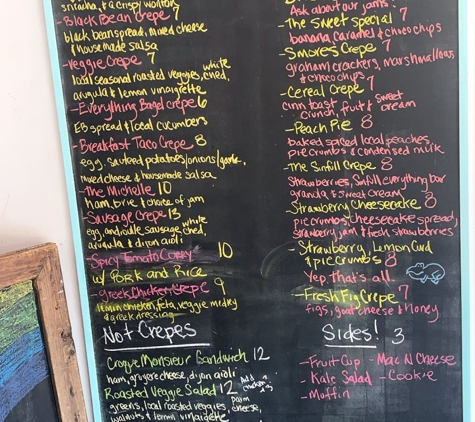 sriracha, & a crispy wonton
-Black Bean Crepe 7
black bean spread, mixed cheese
& house made salsa
-Veggie Crepe 7
local seasonal roasted veggies, white ched,
arugula & lemon vinaigrette
-Everything Bagel crepe 6
EB spread & local cucumbers
-Breakfast Taco Crepe 8
egg, sauteed potatoes/onions/garlic,
mixed cheese & housemade salsa
-The Michelle 10
ham, brie & choice of jam
-Sausage Crepe 13
egg, andouille sausage, white ched,
arugula & dijon aioli
-Spicy Tomato Curry 10
w/ Pork and Rice
-Greek Chicken Crepe 9
lemin chicken, feta, veggie medley
& greek dressing
Not Crepes
Croque Monsieur Sandwich 12
ham, gruyere cheese, dijon aioli
Roasted Veggie Salad 12 Add chicken
greens, local roasted veggies, parm cheese,
walnuts & lemon vinaigrette
Ask about our jams!
-The Sweet Special 7
banana, caramel & choco chips
-Smores Crepe 7
graham crackers, marshmallows,
& choco chips
-Cereal Crepe 7
cinn toast crunch, fruit & sweet cream
-Peach Pie 8
baked spiced local peaches,
pie crumbs & condensed milk
-The Sinfull Crepe 8
Strawberries, Sinfull everything bar
granola & sweet cream
-Strawberry Cheesecake 8
pie crumbs, cheesecake spread,
strawberry jam & fresh strawberries
-Strawberry, Lemon Curd
& pie crumbs 8
Yep. That's all
-Fresh Fig Crepe 7
figs, goat cheese & honey
Sides! 3
-Fruit Cup -Mac N Cheese
-Kale Salad -Cookie
-Muffin